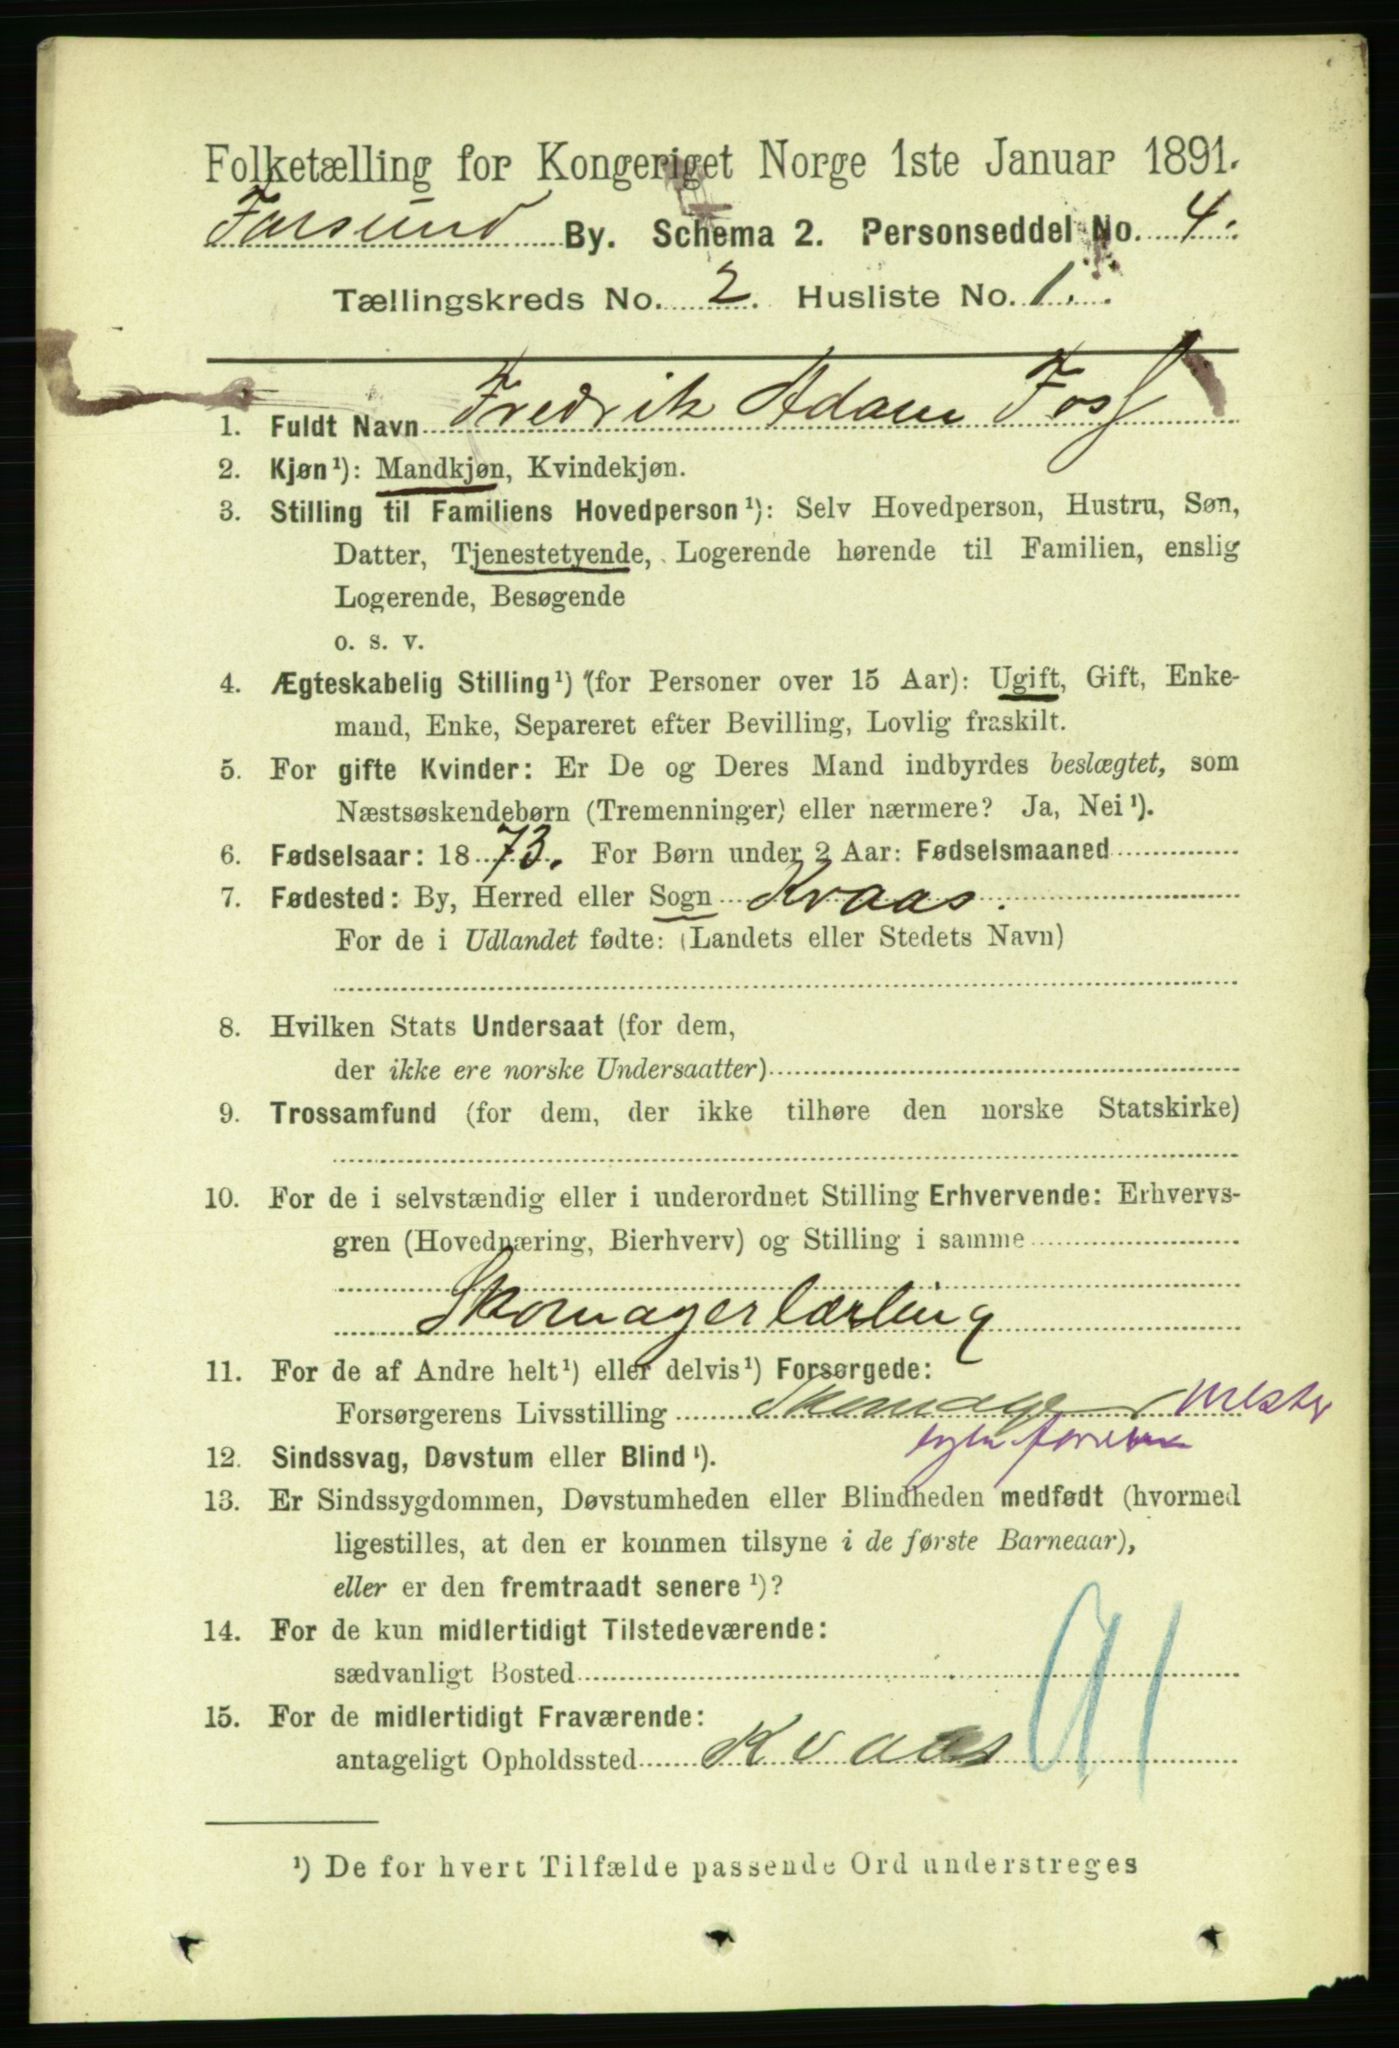 Folketælling for Kongeriget Norge 1ste Januar 1891.
Farsund By. Schema 2. Personseddel No. 4.
Tællingskreds No. 2. Husliste No. 1.
1. Fuldt Navn Fredrik Adam Foss
2. Kjøn¹): Mandkjøn, Kvindekjøn.
3. Stilling til Familiens Hovedperson¹): Selv Hovedperson, Hustru, Søn,
Datter, Tjenestetyende, Logerende hørende til Familien, enslig
Logerende, Besøgende
o. s. v.
4. Ægteskabelig Stilling¹) (for Personer over 15 Aar): Ugift, Gift, Enke-
mand, Enke, Separeret efter Bevilling, Lovlig fraskilt.
5. For gifte Kvinder: Er De og Deres Mand indbyrdes beslægtet, som
Næstsøskendebørn (Tremenninger) eller nærmere? Ja, Nei¹).
6. Fødselsaar: 1873. For Børn under 2 Aar: Fødselsmaaned
7. Fødested: By, Herred eller Sogn Kvaas.
For de i Udlandet fødte: (Landets eller Stedets Navn)
8. Hvilken Stats Undersaat (for dem,
der ikke ere norske Undersaatter)
9. Trossamfund (for dem, der ikke tilhøre den norske Statskirke)
10. For de i selvstændig eller i underordnet Stilling Erhvervende: Erhvervs-
gren (Hovednæring, Bierhverv) og Stilling i samme
Skomagerlærling
11. For de af Andre helt¹) eller delvis¹) Forsørgede:
Forsørgerens Livsstilling Skomager Mester
12. Sindssvag, Døvstum eller Blind¹).
13. Er Sindssygdommen, Døvstumheden eller Blindheden medfødt (hvormed
ligestilles, at den er kommen tilsyne i de første Barneaar),
eller er den fremtraadt senere¹)?
14. For de kun midlertidigt Tilstedeværende:
sædvanligt Bosted
15. For de midlertidigt Fraværende:
antageligt Opholdssted Kvaas 91
¹) De for hvert Tilfælde passende Ord understreges